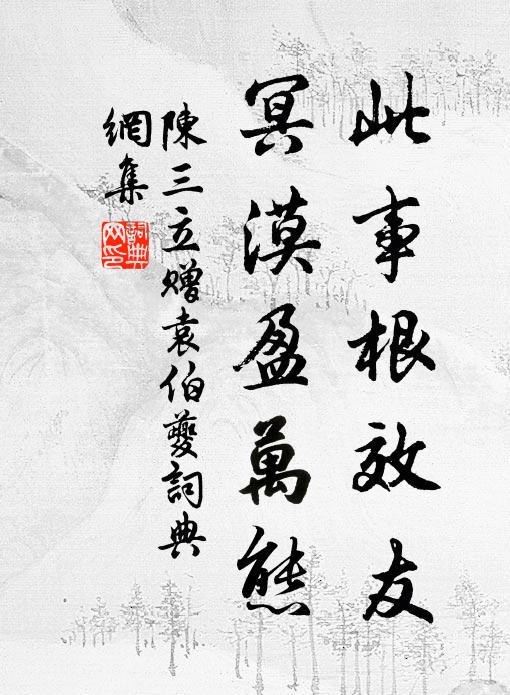 此事根效友
冥漠盈萬態
陳三立贈袁伯夔詞典
網集
詞典
网印